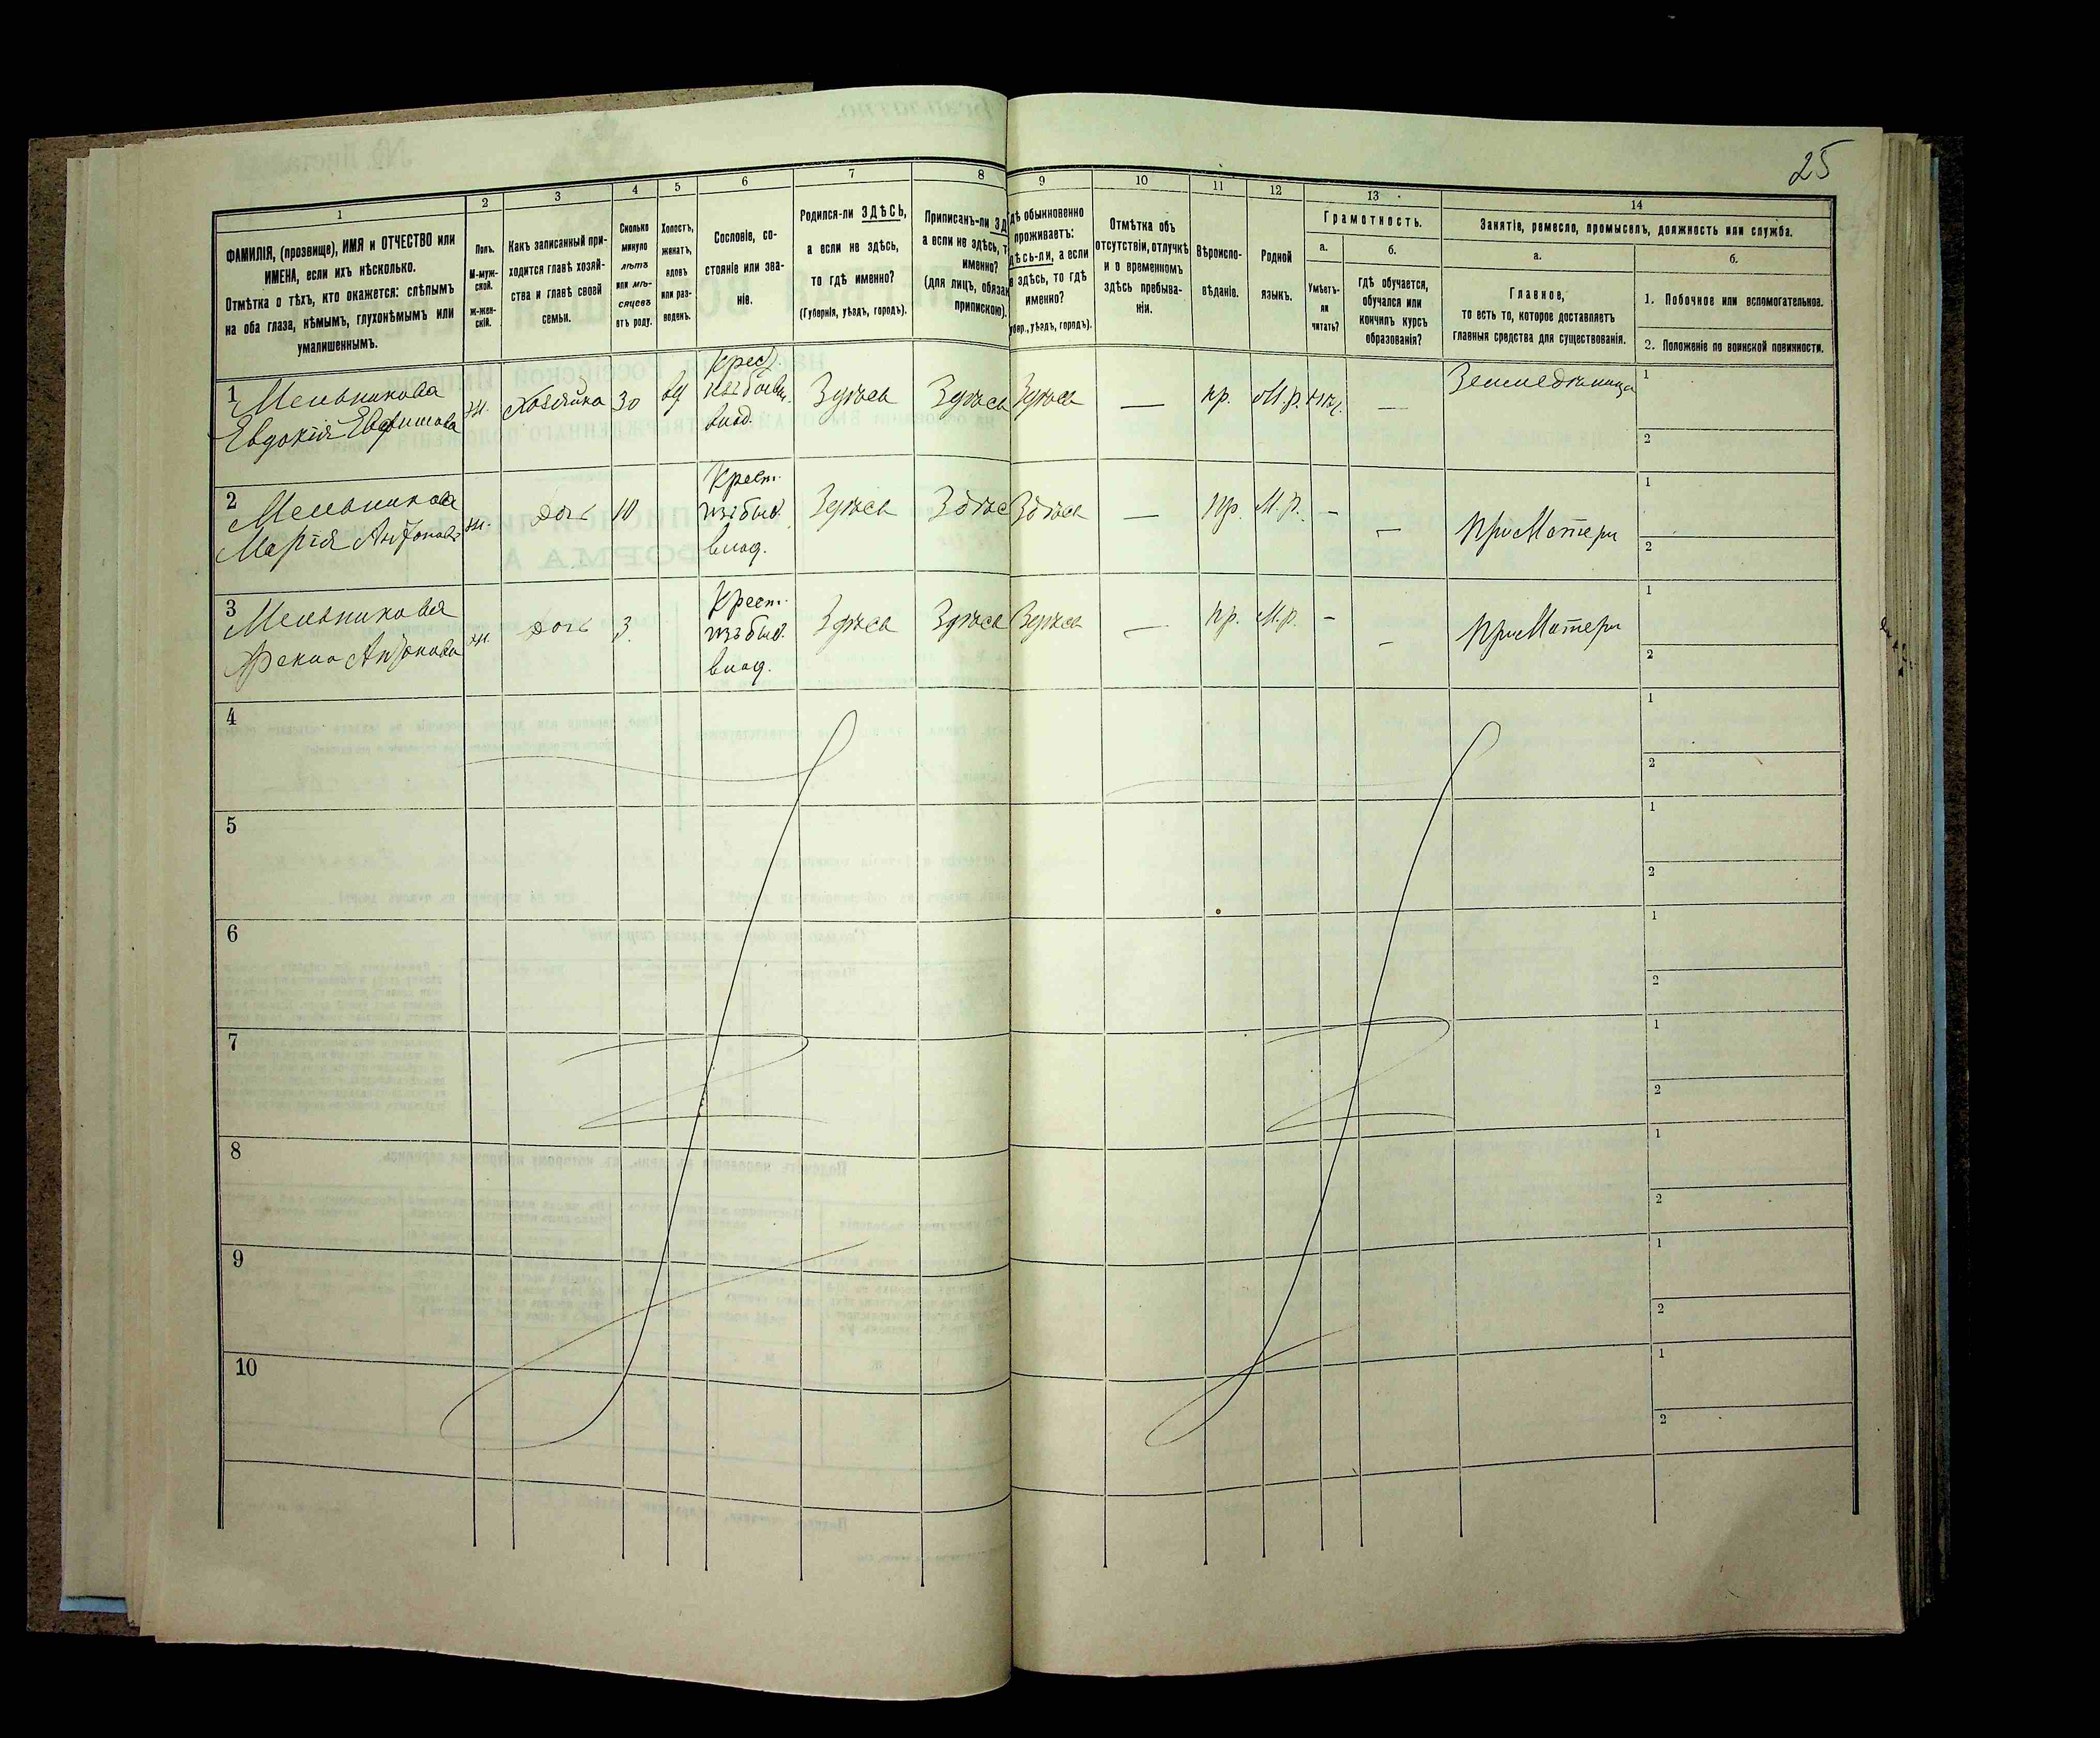 25
1 2 3 4 5 6 7 8 9 10 11 12 13 14
ФАМИЛІЯ, (прозвище), ИМЯ и ОТЧЕСТВО или
ИМЕНА, если ихъ нѣсколько.
Отмѣтка о тѣхъ, кто окажется: слѣпымъ
на оба глаза, нѣмымъ, глухонѣмымъ или
умалишеннымъ.
Полъ.
М-муж-
ской.
ж-жен-
скій.
Какъ записанный при-
ходится главѣ хозяй-
ства и главѣ своей
семьи.
Сколько
минуло
лѣтъ
или мѣ-
сяцевъ
отъ роду.
Холостъ,
женатъ,
вдовъ
или раз-
веденъ.
Сословіе, со-
стояніе или зва-
ніе.
Родился-ли ЗДѢСЬ,
а если не здѣсь,
то гдѣ именно?
(Губернія, уѣздъ, городъ).
Приписанъ-ли ЗД
а если не здѣсь, т
именно?
(для лицъ, обязан
припискою).
дѣ обыкновенно
проживаетъ:
дѣсь-ли, а если
е здѣсь, то гдѣ
именно?
убер., уѣздъ, городъ).
Отмѣтка объ
отсутствіи, отлучкѣ
и о временномъ
здѣсь пребыва-
ніи.
Вѣроиспо-
вѣданіе.
Родной
языкъ.
Грамотность.
а.
Умѣетъ-
ли
читать?
б.
гдѣ обучается,
обучался или
кончилъ курсъ
образованія?
Занятіе, ремесло, промыселъ, должность или служба.
а.
Главное,
то есть то, которое доставляетъ
главныя средства для существованія.
б.
1. Побочное или вспомогательное.
2. Положеніе по воинской повинности.
1 Мельникова
Евдокія Ефимова
ж. Хозяйка 30 вд
Крест.
изъ бывш.
влад.
Здѣсь Здѣсь Здѣсь — пр. М.р. нѣт. —
Земледѣлица
1
2
2 Мельникова
Марія Антонова
ж. дочь 10
Крест.
изъ быв.
влад.
Здѣсь Здѣсь Здѣсь — пр. М.р. - —
При Матери
1
2
3 Мельникова
Фекла Антонова
ж. дочь 3.
Крест.
изъ быв.
влад.
Здѣсь Здѣсь Здѣсь — пр. М.р. - –
При Матери
1
2
4
1
2
5
1
2
6
1
2
7
1
2
8
1
2
9
1
2
10
1
2